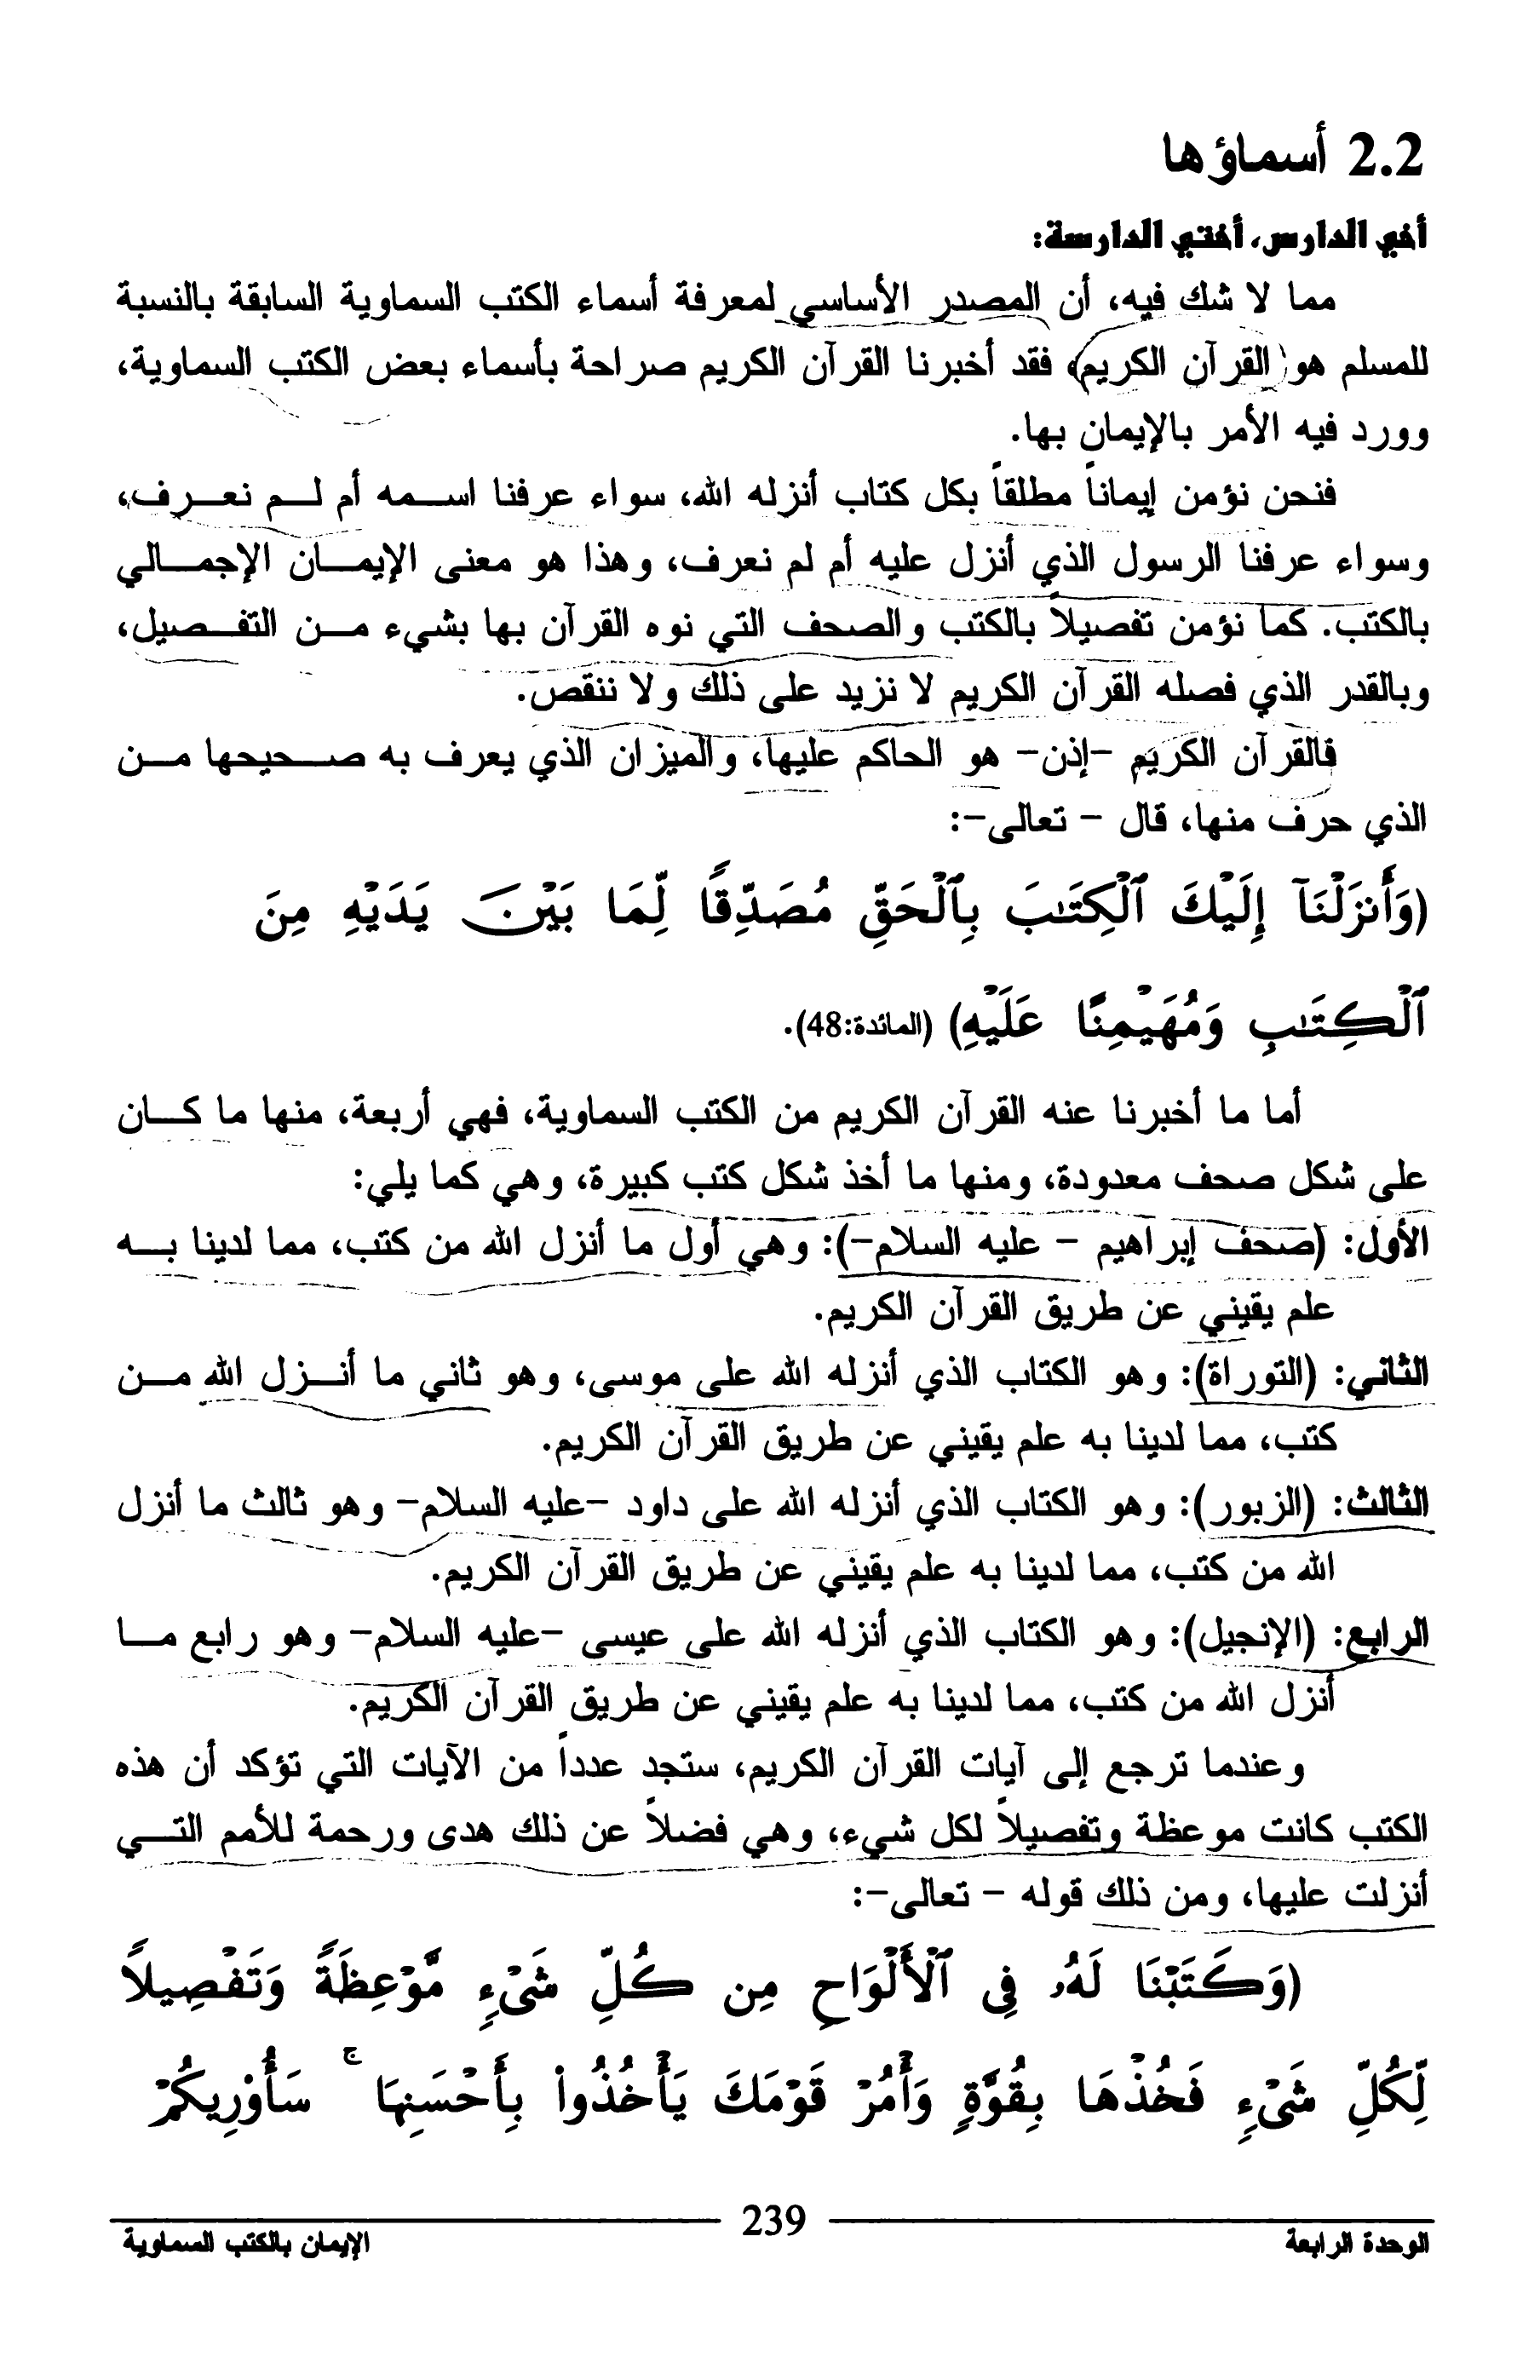 2.2 أسماؤها
أخي الدارس، أختي الدارسة:
مما لا شك فيه، أن المصدر الأساسي لمعرفة أسماء الكتب السماوية السابقة بالنسبة
للمسلم هو (القرآن الكريم) فقد أخبرنا القرآن الكريم صراحة بأسماء بعض الكتب السماوية،
وورد فيه الأمر بالإيمان بها.
فنحن نؤمن إيماناً مطلقاً بكل كتاب أنزله الله، سواء عرفنا اسمه أم لم نعرف،
وسواء عرفنا الرسول الذي أنزل عليه أم لم نعرف، وهذا هو معنى الإيمان الإجمالي
بالكتب. كما نؤمن تفصيلاً بالكتب والصحف التي نوه القرآن بها بشيء من التفصيل،
وبالقدر الذي فصله القرآن الكريم لا نزيد على ذلك ولا ننقص.
فالقرآن الكريم -إذن- هو الحاكم عليها، والميزان الذي يعرف به صحيحها من
الذي حرف منها، قال - تعالى-:
(وَأَنزَلْنَآ إِلَيْكَ ٱلْكِتَـٰبَ بِٱلْحَقِّ مُصَدِّقًا لِّمَا بَيْنَ يَدَيْهِ مِنَ
ٱلْكِتَـٰبِ وَمُهَيْمِنًا عَلَيْهِ) (المائدة:48).
أما ما أخبرنا عنه القرآن الكريم من الكتب السماوية، فهي أربعة، منها ما كان
على شكل صحف معدودة، ومنها ما أخذ شكل كتب كبيرة، وهي كما يلي:
الأول: (صحف إبراهيم - عليه السلام-): وهي أول ما أنزل الله من كتب، مما لدينا به
علم يقيني عن طريق القرآن الكريم.
الثاني: (التوراة): وهو الكتاب الذي أنزله الله على موسى، وهو ثاني ما أنزل الله من
كتب، مما لدينا به علم يقيني عن طريق القرآن الكريم.
الثالث: (الزبور): وهو الكتاب الذي أنزله الله على داود -عليه السلام- وهو ثالث ما أنزل
الله من كتب، مما لدينا به علم يقيني عن طريق القرآن الكريم.
الرابع: (الإنجيل): وهو الكتاب الذي أنزله الله على عيسى -عليه السلام- وهو رابع ما
أنزل الله من كتب، مما لدينا به علم يقيني عن طريق القرآن الكريم.
وعندما ترجع إلى آيات القرآن الكريم، ستجد عدداً من الآيات التي تؤكد أن هذه
الكتب كانت موعظة وتفصيلاً لكل شيء، وهي فضلاً عن ذلك هدى ورحمة للأمم التي
أنزلت عليها، ومن ذلك قوله - تعالى-:
(وَكَتَبْنَا لَهُۥ فِى ٱلْأَلْوَاحِ مِن كُلِّ شَىْءٍ مَّوْعِظَةً وَتَفْصِيلاً
لِّكُلِّ شَىْءٍ فَخُذْهَا بِقُوَّةٍ وَأْمُرْ قَوْمَكَ يَأْخُذُواْ بِأَحْسَنِهَا ۚ سَأُوْرِيكُمْ
239
الوحدة الرابعة
الإيمان بالكتب السماوية